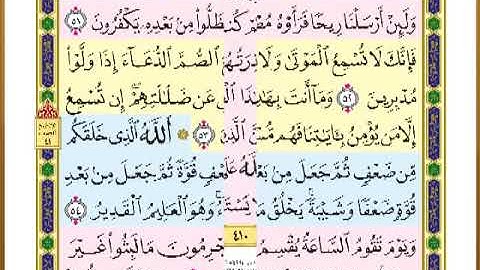 وَلَئِنْ أَرْسَلْنَا رِيحًا فَرَأَوْهُ مُصْفَرًّا لَّظَلُّوا۟ مِنۢ بَعْدِهِۦ يَكْفُرُونَ ٥١
فَإِنَّكَ لَا تُسْمِعُ ٱلْمَوْتَىٰ وَلَا ٱلصُّمَّ ٱلدُّعَآءَ إِذَا وَلَّوْا۟
مُدْبِرِينَ ٥٢ وَمَآ أَنتَ بِهَٰدِ عَن ضَلَٰلَتِهِمْ إِن تُسْمِعُ
إِلَّا مَن يُؤْمِنُ بِـَٔايَٰتِنَا فَهُم ٥٣ ٱللَّهُ ٱلَّذِى خَلَقَكُم
مِّن ضَعْفٍ ثُمَّ جَعَلَ مِنۢ بَعْدِ ضَعْفٍ قُوَّةً ثُمَّ جَعَلَ مِنۢ بَعْدِ
قُوَّةٍ ضَعْفًا وَشَيْبَةً يَخْلُقُ مَا يَشَآءُ وَهُوَ ٱلْعَلِيمُ ٱلْقَدِيرُ ٥٤
وَيَوْمَ تَقُومُ ٱلسَّاعَةُ يُقْسِمُ ٱلْمُجْرِمُونَ مَا لَبِثُوا۟ غَيْرَ
٤١٠